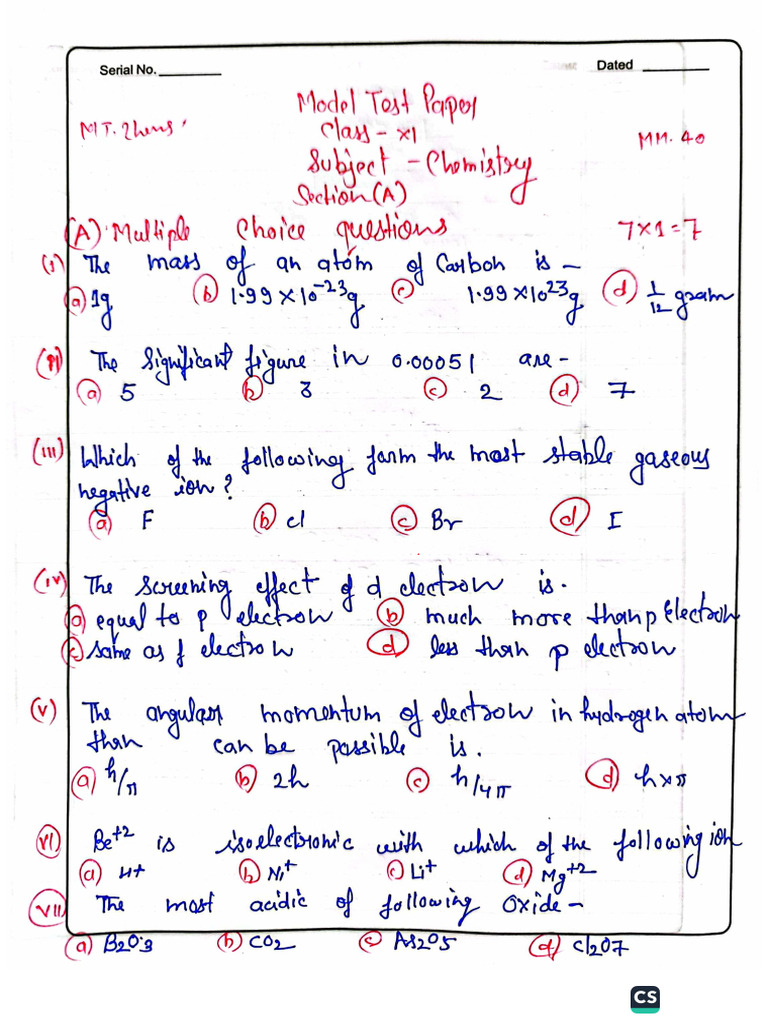 Serial No.
Dated
Model Test Paper
MT. 2hours
Class - XI
MM. 40
Subject - Chemistry
Section (A)
(A) Multiple Choice questions 7×1=7
(i) The mass of an atom of Carbon is -
(a) 1g (b) 1.99×10⁻²³g (c) 1.99×10²³g (d) 1/12 gram
(ii) The Significant figure in 0.00051 are -
(a) 5 (b) 3 (c) 2 (d) 7
(iii) Which of the following form the most stable gaseous
negative ion?
(a) F (b) cl (c) Br (d) I
(iv) The screening effect of d electron is.
(a) equal to p electron (b) much more than p electron
(c) same as f electron (d) less than p electron
(v) The angular momentum of electron in hydrogen atom
than can be possible is.
(a) h/π (b) 2h (c) h/4π (d) h×π
(vi) Be⁺² is isoelectronic with which of the following ion
(a) H+ (b) (c) Li⁺ (d) Mg⁺²
(vii) The most acidic of following oxide -
(a) B2O3 (b) CO2 (c) As2O5 (d) Cl2O7
CS